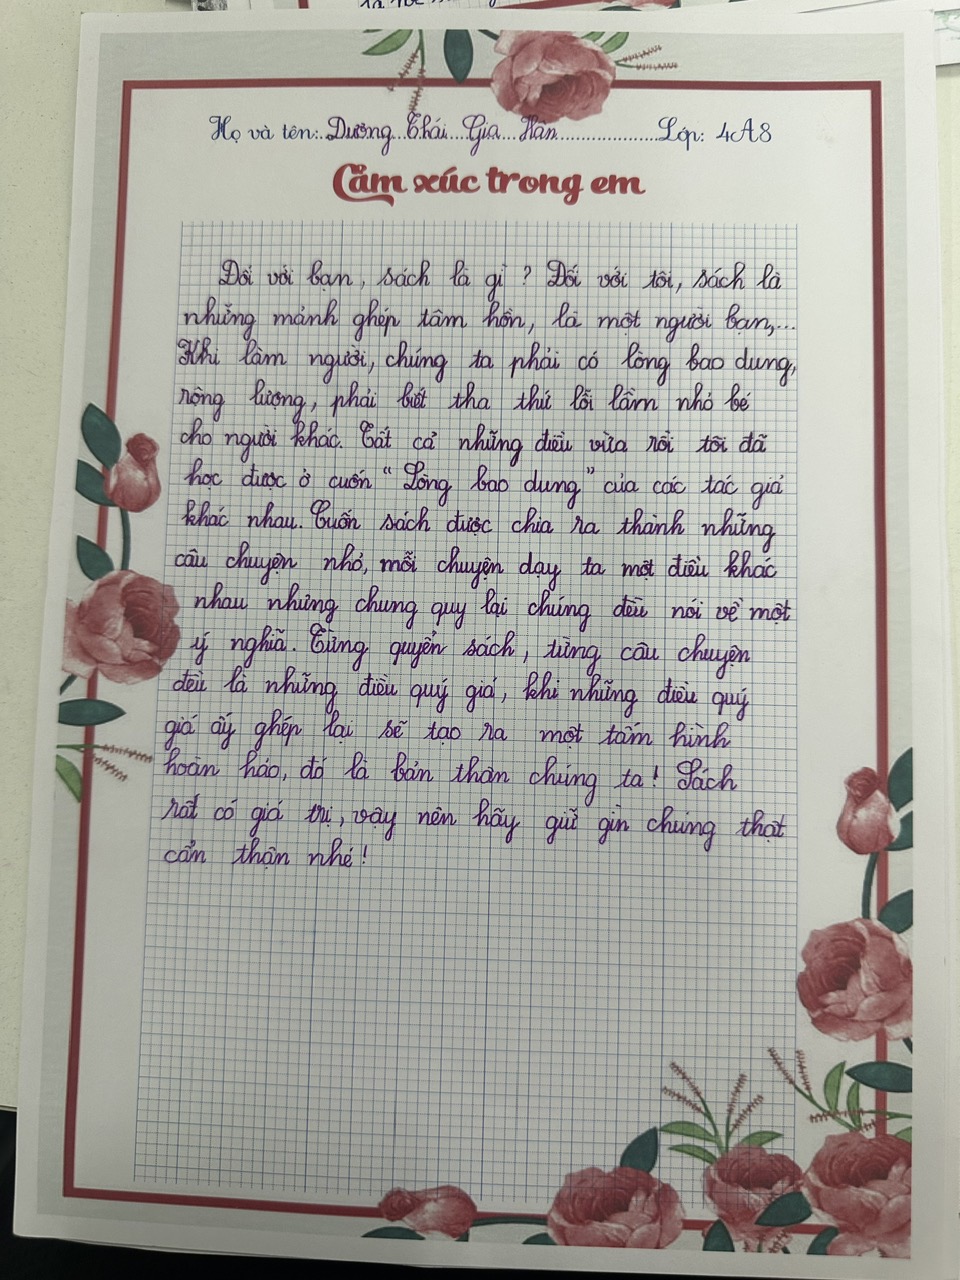 Họ và tên:..Dương..Thái...Gia...Hân....................Lớp: 4A8
Cảm xúc trong em
Đối với bạn, sách là gì ? Đối với tôi, sách là
những mảnh ghép tâm hồn, là một người bạn,...
Khi làm người, chúng ta phải có lòng bao dung,
rộng lượng, phải biết tha thứ lỗi lầm nhỏ bé
cho người khác. Tất cả những điều vừa rồi tôi đã
học được ở cuốn "Lòng bao dung" của các tác giả
khác nhau. Cuốn sách được chia ra thành những
câu chuyện nhỏ, mỗi chuyện dạy ta một điều khác
nhau nhưng chung quy lại chúng đều nói về một
ý nghĩa. Từng quyển sách, từng câu chuyện
đều là những điều quý giá, khi những điều quý
giá ấy ghép lại sẽ tạo ra một tấm hình
hoàn hảo, đó là bản thân chúng ta! Sách
rất có giá trị, vậy nên hãy giữ gìn chúng thật
cẩn thận nhé!